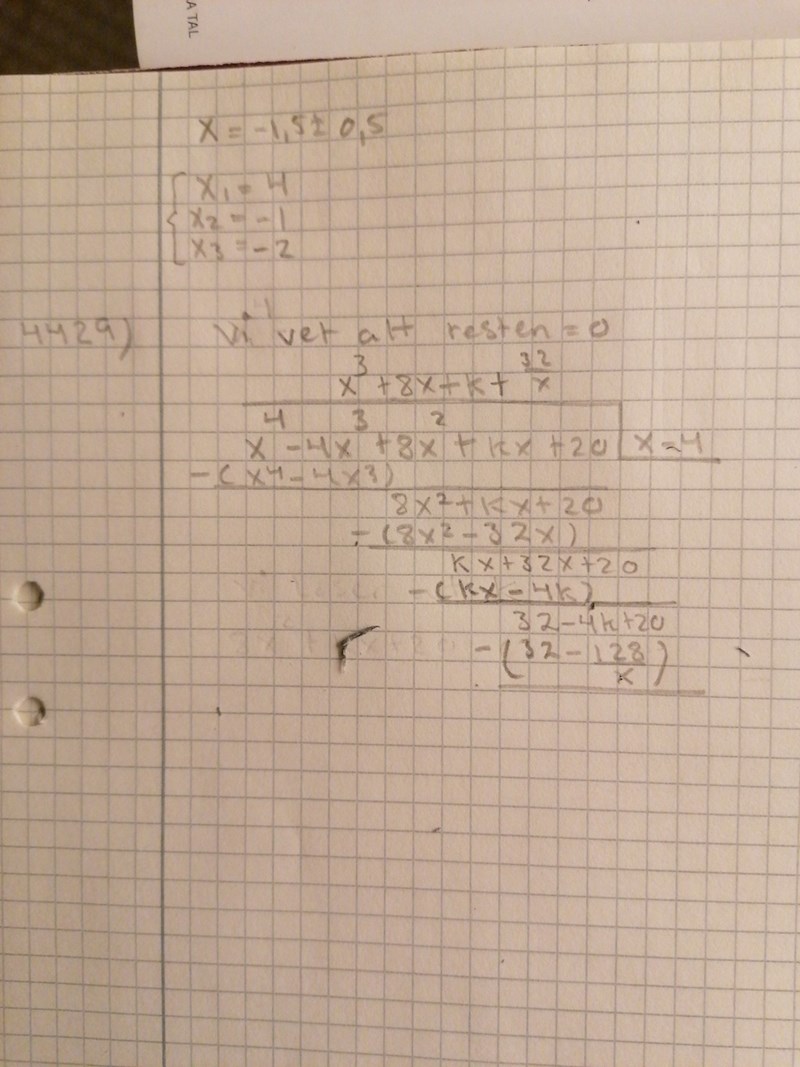 A TAL
x = -1,5 ± 0,5
x₁ = 4
x₂ = -1
x₃ = -2
4429) Vi vet att resten = 0
x³ + 8x + k + 32/x
x⁴ - 4x³ + 8x² + kx + 20 | x-4
-(x⁴ - 4x³)
8x² + kx + 20
-(8x² - 32x)
kx + 32x + 20
-(kx - 4k)
32 - 4k + 20
-(32 - 128/x)